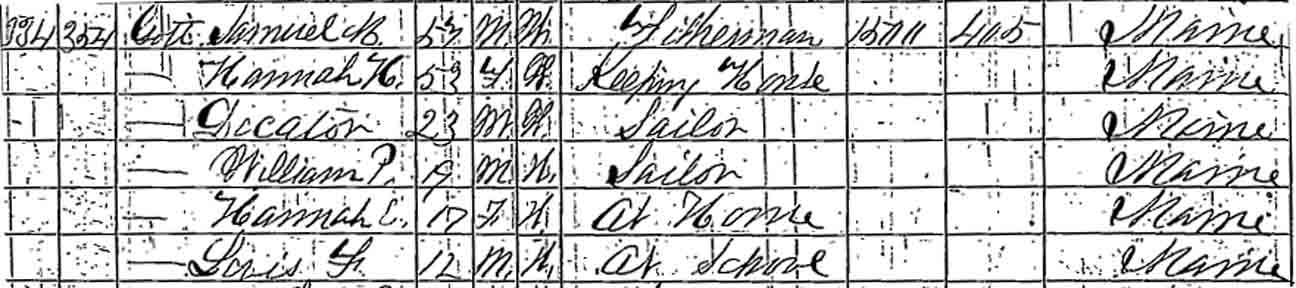 334 354 Cott Samuel R. 57 M. W. Fisherman 1500 405 Maine
— Hannah H. 53 F. W. Keeping House Maine
— Decator 23 M. W. Sailor Maine
— William P. 19 M. W. Sailor Maine
— Hannah C. 17 F. W. At Home Maine
— Lovis F. 12 M. W. At School Maine